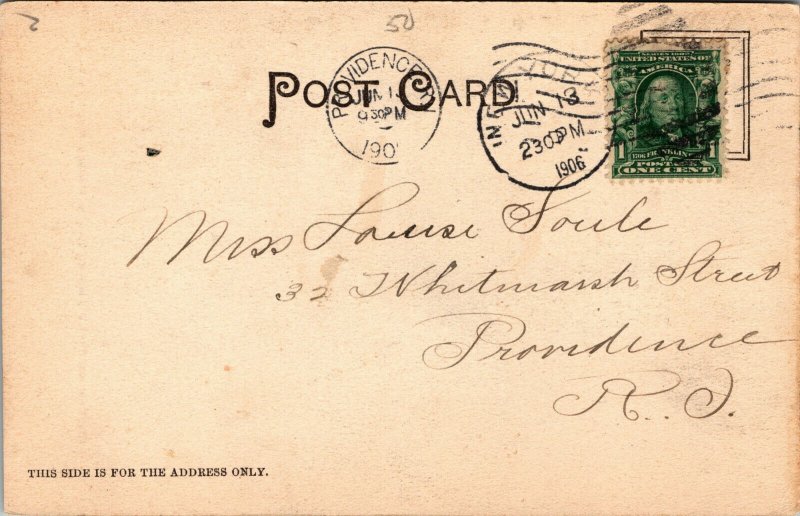 2 50
POST CARD
PROVIDENCE R.
JUN 13
9 30 PM
190
YORK
JUN 13
2 30 PM
1906
SERIES 1902
UNITED STATES OF
AMERICA
1706 FRANKLIN
POSTAGE
ONE CENT
Miss Louise Soule
32 Whitmarsh Street
Providence
R.I.
THIS SIDE IS FOR THE ADDRESS ONLY.